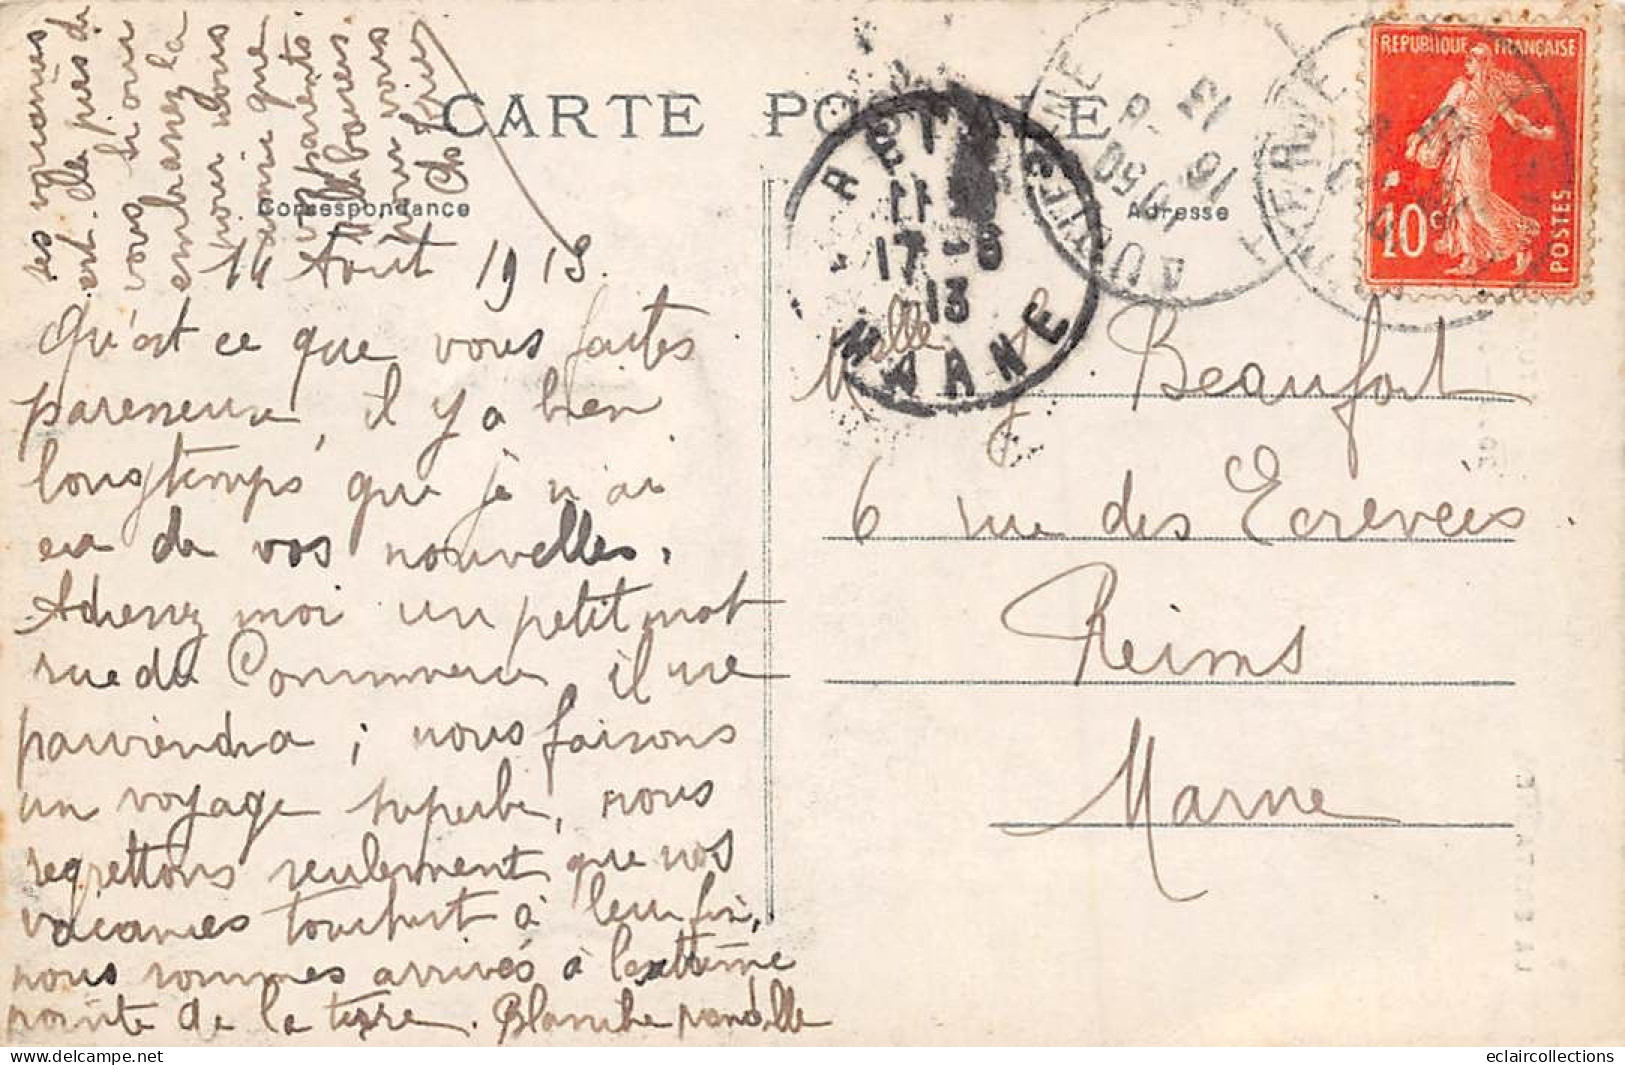 CARTE POSTALE
Correspondance
Adresse
REPUBLIQUE FRANÇAISE
10 c
POSTES
REIMS
17 - 8
13
MARNE
16 - 8
13
14 Août 1913.
Qu'est ce que vous faites
paresseuse, il y a bien
longtemps que je n'ai
eu de vos nouvelles.
Adressez moi un petit mot
rue du Commerce il me
parviendra ; nous faisons
un voyage superbe, nous
regrettons seulement que nos
vacances touchent à leur fin,
nous sommes arrivés à l'extrême
pointe de la terre. Blanche pendant
ses vacances
est de près de
vous
embrassez la
pour nous
ainsi que
vos parents
baisers
pour vous
Melle J Beaufort
6 rue des Ecrevées.
Reims
Marne
eclaircollections